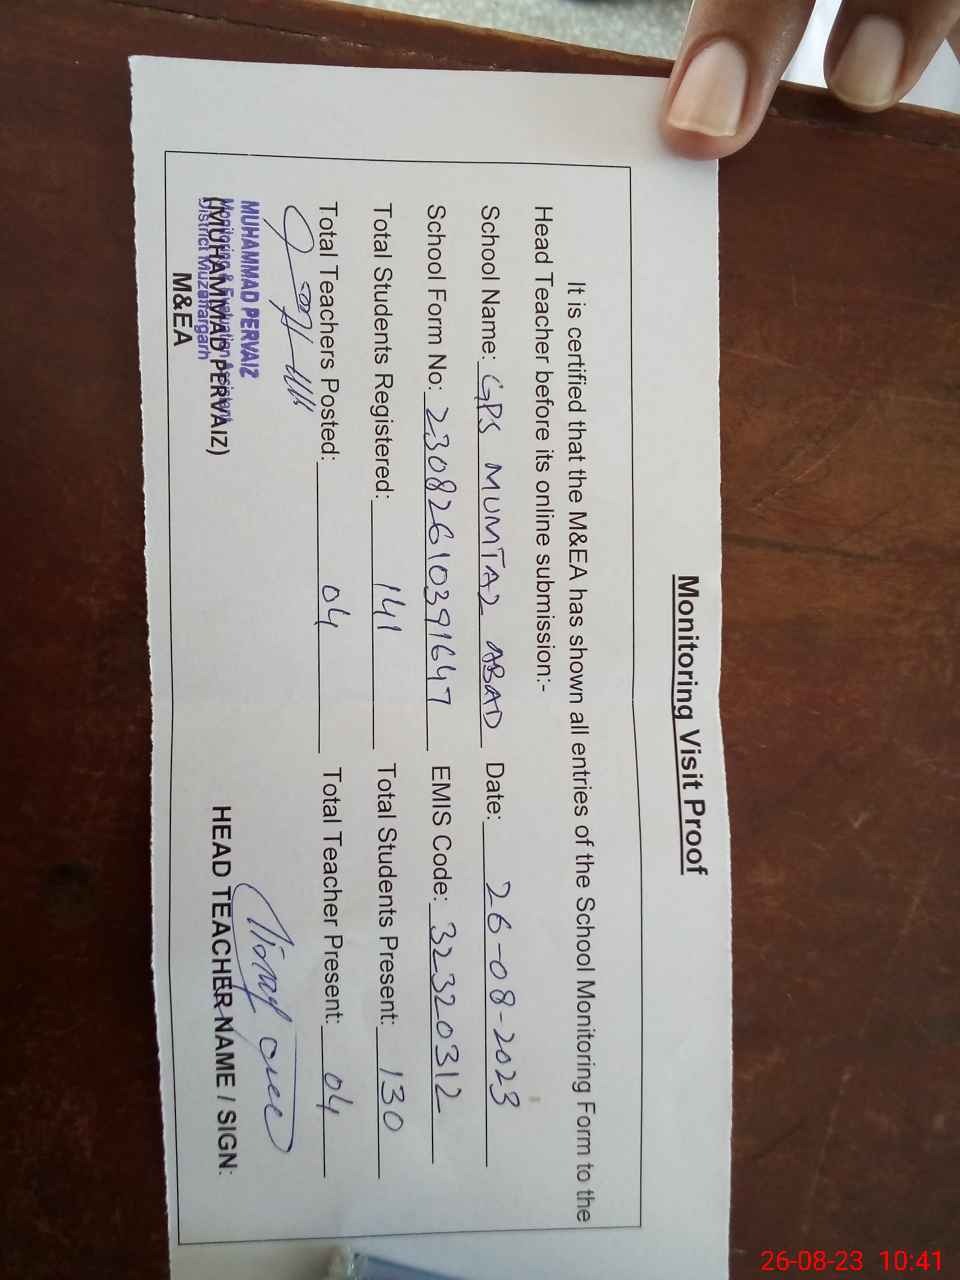 Monitoring Visit Proof
It is certified that the M&EA has shown all entries of the School Monitoring Form to the
Head Teacher before its online submission:-
School Name: GPS MUMTAZ ABAD Date: 26-08-2023
School Form No: 23082610391647 EMIS Code: 32320312
Total Students Registered: 141 Total Students Present: 130
Total Teachers Posted: 04 Total Teacher Present: 04
MUHAMMAD PERVAIZ
Monitoring & Evaluation Assistant
District Muzaffargarh
(MUHAMMAD PERVAIZ)
M&EA
HEAD TEACHER NAME / SIGN:
26-08-23 10:41